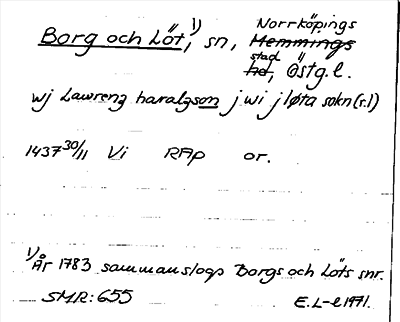 Norrköpings
Borg och Löt, 1) sn, Memmings
stad
hd, Östg.l.
wj Lawrenz haralzson j wi j løta sokn (s.l)
1437 30/11 Vi RAp or.
1) År 1783 sammanslogs Borgs och Löts snr.
SMR: 655 E.L-e 1971.